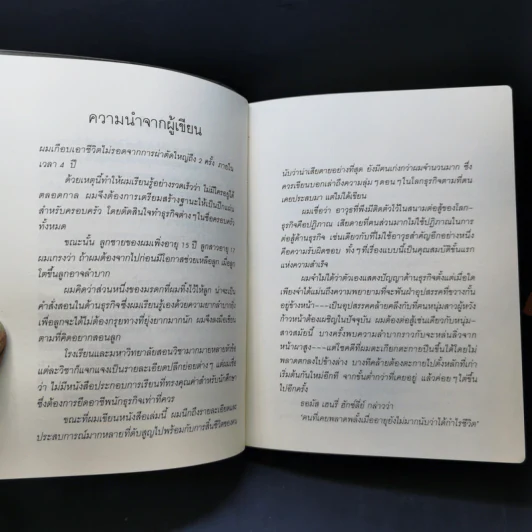 ความนำจากผู้เขียน
ผมเกือบเอาชีวิตไม่รอดจากการผ่าตัดใหญ่ถึง 2 ครั้ง ภายใน
เวลา 4 ปี
ด้วยเหตุนี้ทำให้ผมเรียนรู้อย่างรวดเร็วว่า ไม่มีใครอยู่ได้
ตลอดกาล ผมจึงต้องการเตรียมสร้างฐานะให้เป็นปึกแผ่น
สำหรับครอบครัว โดยตัดสินใจทำธุรกิจต่างๆในชื่อครอบครัว
ทั้งหมด
ขณะนั้น ลูกชายของผมเพิ่งอายุ 15 ปี ลูกสาวอายุ 17
ผมเกรงว่า ถ้าผมต้องจากไปก่อนมีโอกาสช่วยเหลือลูก เมื่อลูก
โตขึ้นลูกอาจลำบาก
ผมคิดว่าส่วนหนึ่งของมรดกที่ผมทิ้งไว้ให้ลูก น่าจะเป็น
คำสั่งสอนในด้านธุรกิจซึ่งผมเรียนรู้เองด้วยความยากลำบาก
เพื่อลูกจะได้ไม่ต้องกรุยทางที่ยุ่งยากมากนัก ผมจึงลงมือเขียน
ตามที่คิดอยากสอนลูก
โรงเรียนและมหาวิทยาลัยสอนวิชามากมายหลายหัวข้อ
แต่ละวิชาก็แจกแจงเป็นรายละเอียดปลีกย่อยต่างๆ แต่ผม
ว่า ไม่มีหนังสือประกอบการเรียนที่ทรงคุณค่าสำหรับนักศึกษา
ซึ่งต้องการยึดอาชีพนักธุรกิจเท่าที่ควร
ขณะที่ผมเขียนหนังสือเล่มนี้ ผมนึกถึงรายละเอียดและ
ประสบการณ์มากหลายที่ดับสูญไปพร้อมกับการสิ้นชีวิตของคน
นับว่าน่าเสียดายอย่างที่สุด ยังมีคนเก่งกว่าผมจำนวนมาก ซึ่ง
ควรเขียนบอกเล่าถึงความลุ่มๆดอนๆในโลกธุรกิจตามที่ตน
เคยประสบมา แต่ไม่ได้เขียน
ผมเชื่อว่า อาวุธที่พึงมีติดตัวไว้ในสนามต่อสู้ของโลก-
ธุรกิจคือปฏิภาณ เสียดายที่คนส่วนมากไม่ใช้ปฏิภาณในการ
ต่อสู้ด้านธุรกิจ เช่นเดียวกับที่ไม่ใช้อาวุธสำคัญอีกอย่างหนึ่ง
คือความรับผิดชอบ ทั้งๆที่เรื่องแบบนี้เป็นคุณสมบัติขั้นแรก
แห่งความสำเร็จ
ผมจำไม่ได้ว่าตัวเองแสดงปัญญาด้านธุรกิจตั้งแต่เมื่อใด
เพียงจำได้แม่นถึงความพยายามที่จะฟันฝ่าอุปสรรคที่ขวางกั้น
อยู่ข้างหน้า---เป็นอุปสรรคคล้ายคลึงกับที่คนหนุ่มสาวผู้หวัง
ก้าวหน้าต้องเผชิญในปัจจุบัน ผมต้องต่อสู้เช่นเดียวกับหนุ่ม-
สาวสมัยนี้ บางครั้งพบความลำบากราวกับจะหล่นลิ่วจาก
หน้าผาสูง---แต่โชคดีที่ผมตะเกียกตะกายปีนขึ้นได้โดยไม่
พลาดตกลงไปข้างล่าง บางทีคล้ายต้องตะกายไปดั้งหลักที่เก่า
เริ่มต้นกันใหม่อีกที จากขั้นต่ำกว่าที่เคยอยู่ แล้วค่อยๆไต่ขึ้น
ไปอีกครั้ง
ธอมัส เฮนรี่ ฮักซ์ลี่ย์ กล่าวว่า
"คนที่เคยพลาดพลั้งเมื่ออายุยังไม่มากนับว่าได้กำไรชีวิต"